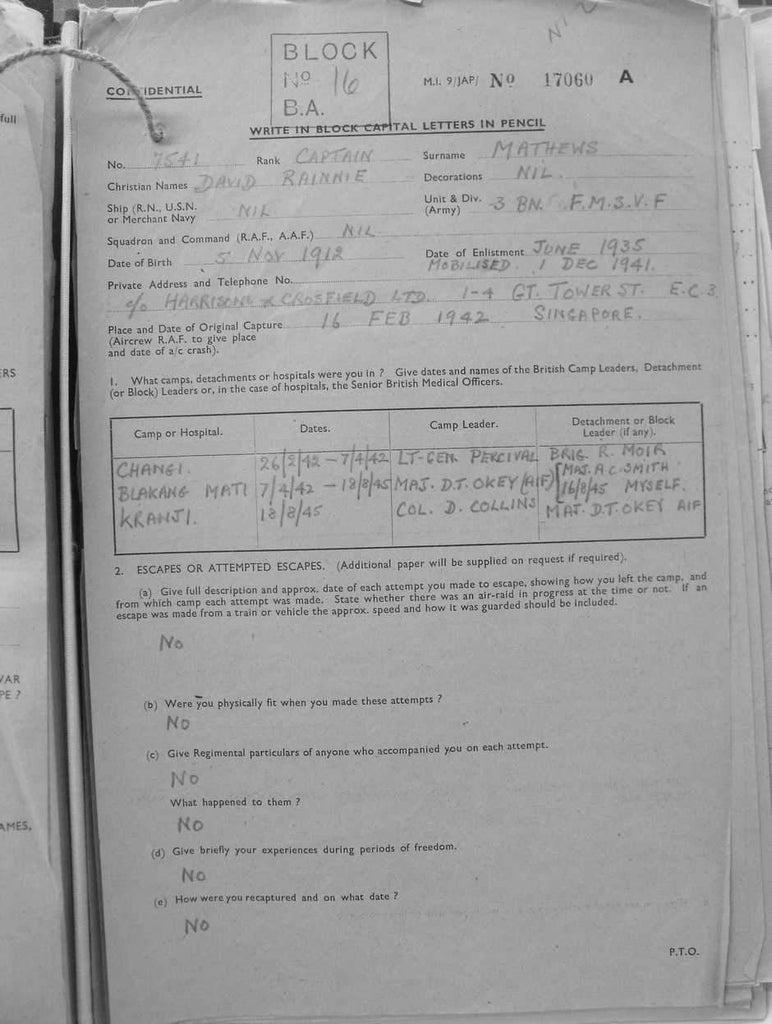 full
ERS
WAR
PE ?
AMES,
NIL
BLOCK
No 16
B.A.
CONFIDENTIAL
M.I. 9/JAP/ No 17060 A
WRITE IN BLOCK CAPITAL LETTERS IN PENCIL
No. 7541 Rank CAPTAIN Surname MATHEWS
Christian Names DAVID RAINNIE Decorations NIL.
Ship (R.N., U.S.N. or Merchant Navy NIL Unit & Div. (Army) 3 BN. F.M.S.V.F
Squadron and Command (R.A.F., A.A.F.) NIL
Date of Birth 5 NOV 1912 Date of Enlistment JUNE 1935
MOBILISED. 1 DEC 1941.
Private Address and Telephone No.
c/o HARRISONS & CROSFIELD LTD. 1-4 GT. TOWER ST. E.C.3
Place and Date of Original Capture 16 FEB 1942 SINGAPORE.
(Aircrew R.A.F. to give place
and date of a/c crash).
1. What camps, detachments or hospitals were you in ? Give dates and names of the British Camp Leaders, Detachment
(or Block) Leaders or, in the case of hospitals, the Senior British Medical Officers.
Camp or Hospital. Dates. Camp Leader. Detachment or Block Leader (if any).
CHANGI. 26/2/42 – 7/4/42 LT-GEN. PERCIVAL BRIG. R. MOIR
BLAKANG MATI 7/4/42 – 18/8/45 MAJ. D.T. OKEY (AIF) MAJ. A C SMITH
16/8/45 MYSELF.
KRANJI. 18/8/45 COL. D. COLLINS MAJ. D.T. OKEY AIF
2. ESCAPES OR ATTEMPTED ESCAPES. (Additional paper will be supplied on request if required).
(a) Give full description and approx. date of each attempt you made to escape, showing how you left the camp, and
from which camp each attempt was made. State whether there was an air-raid in progress at the time or not. If an
escape was made from a train or vehicle the approx. speed and how it was guarded should be included.
NO
(b) Were you physically fit when you made these attempts ?
NO
(c) Give Regimental particulars of anyone who accompanied you on each attempt.
NO
What happened to them ?
NO
(d) Give briefly your experiences during periods of freedom.
NO
(e) How were you recaptured and on what date ?
NO
P.T.O.